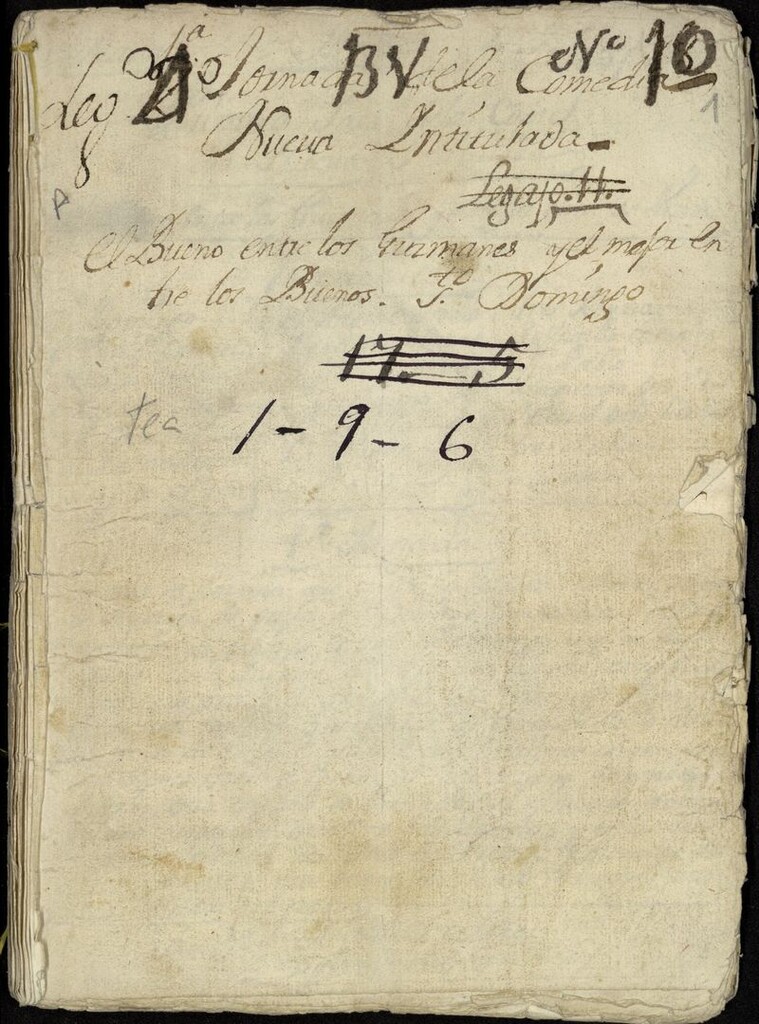 Leg.º 21 BV Nº 10
1ª Jornada de la Comedia 1
Nueva Intitulada
Legajo. 11.
A
el Bueno entre los Guzmanes y el mejor en
tre los Buenos. S.to Domingo
17. 5
tea 1-9-6